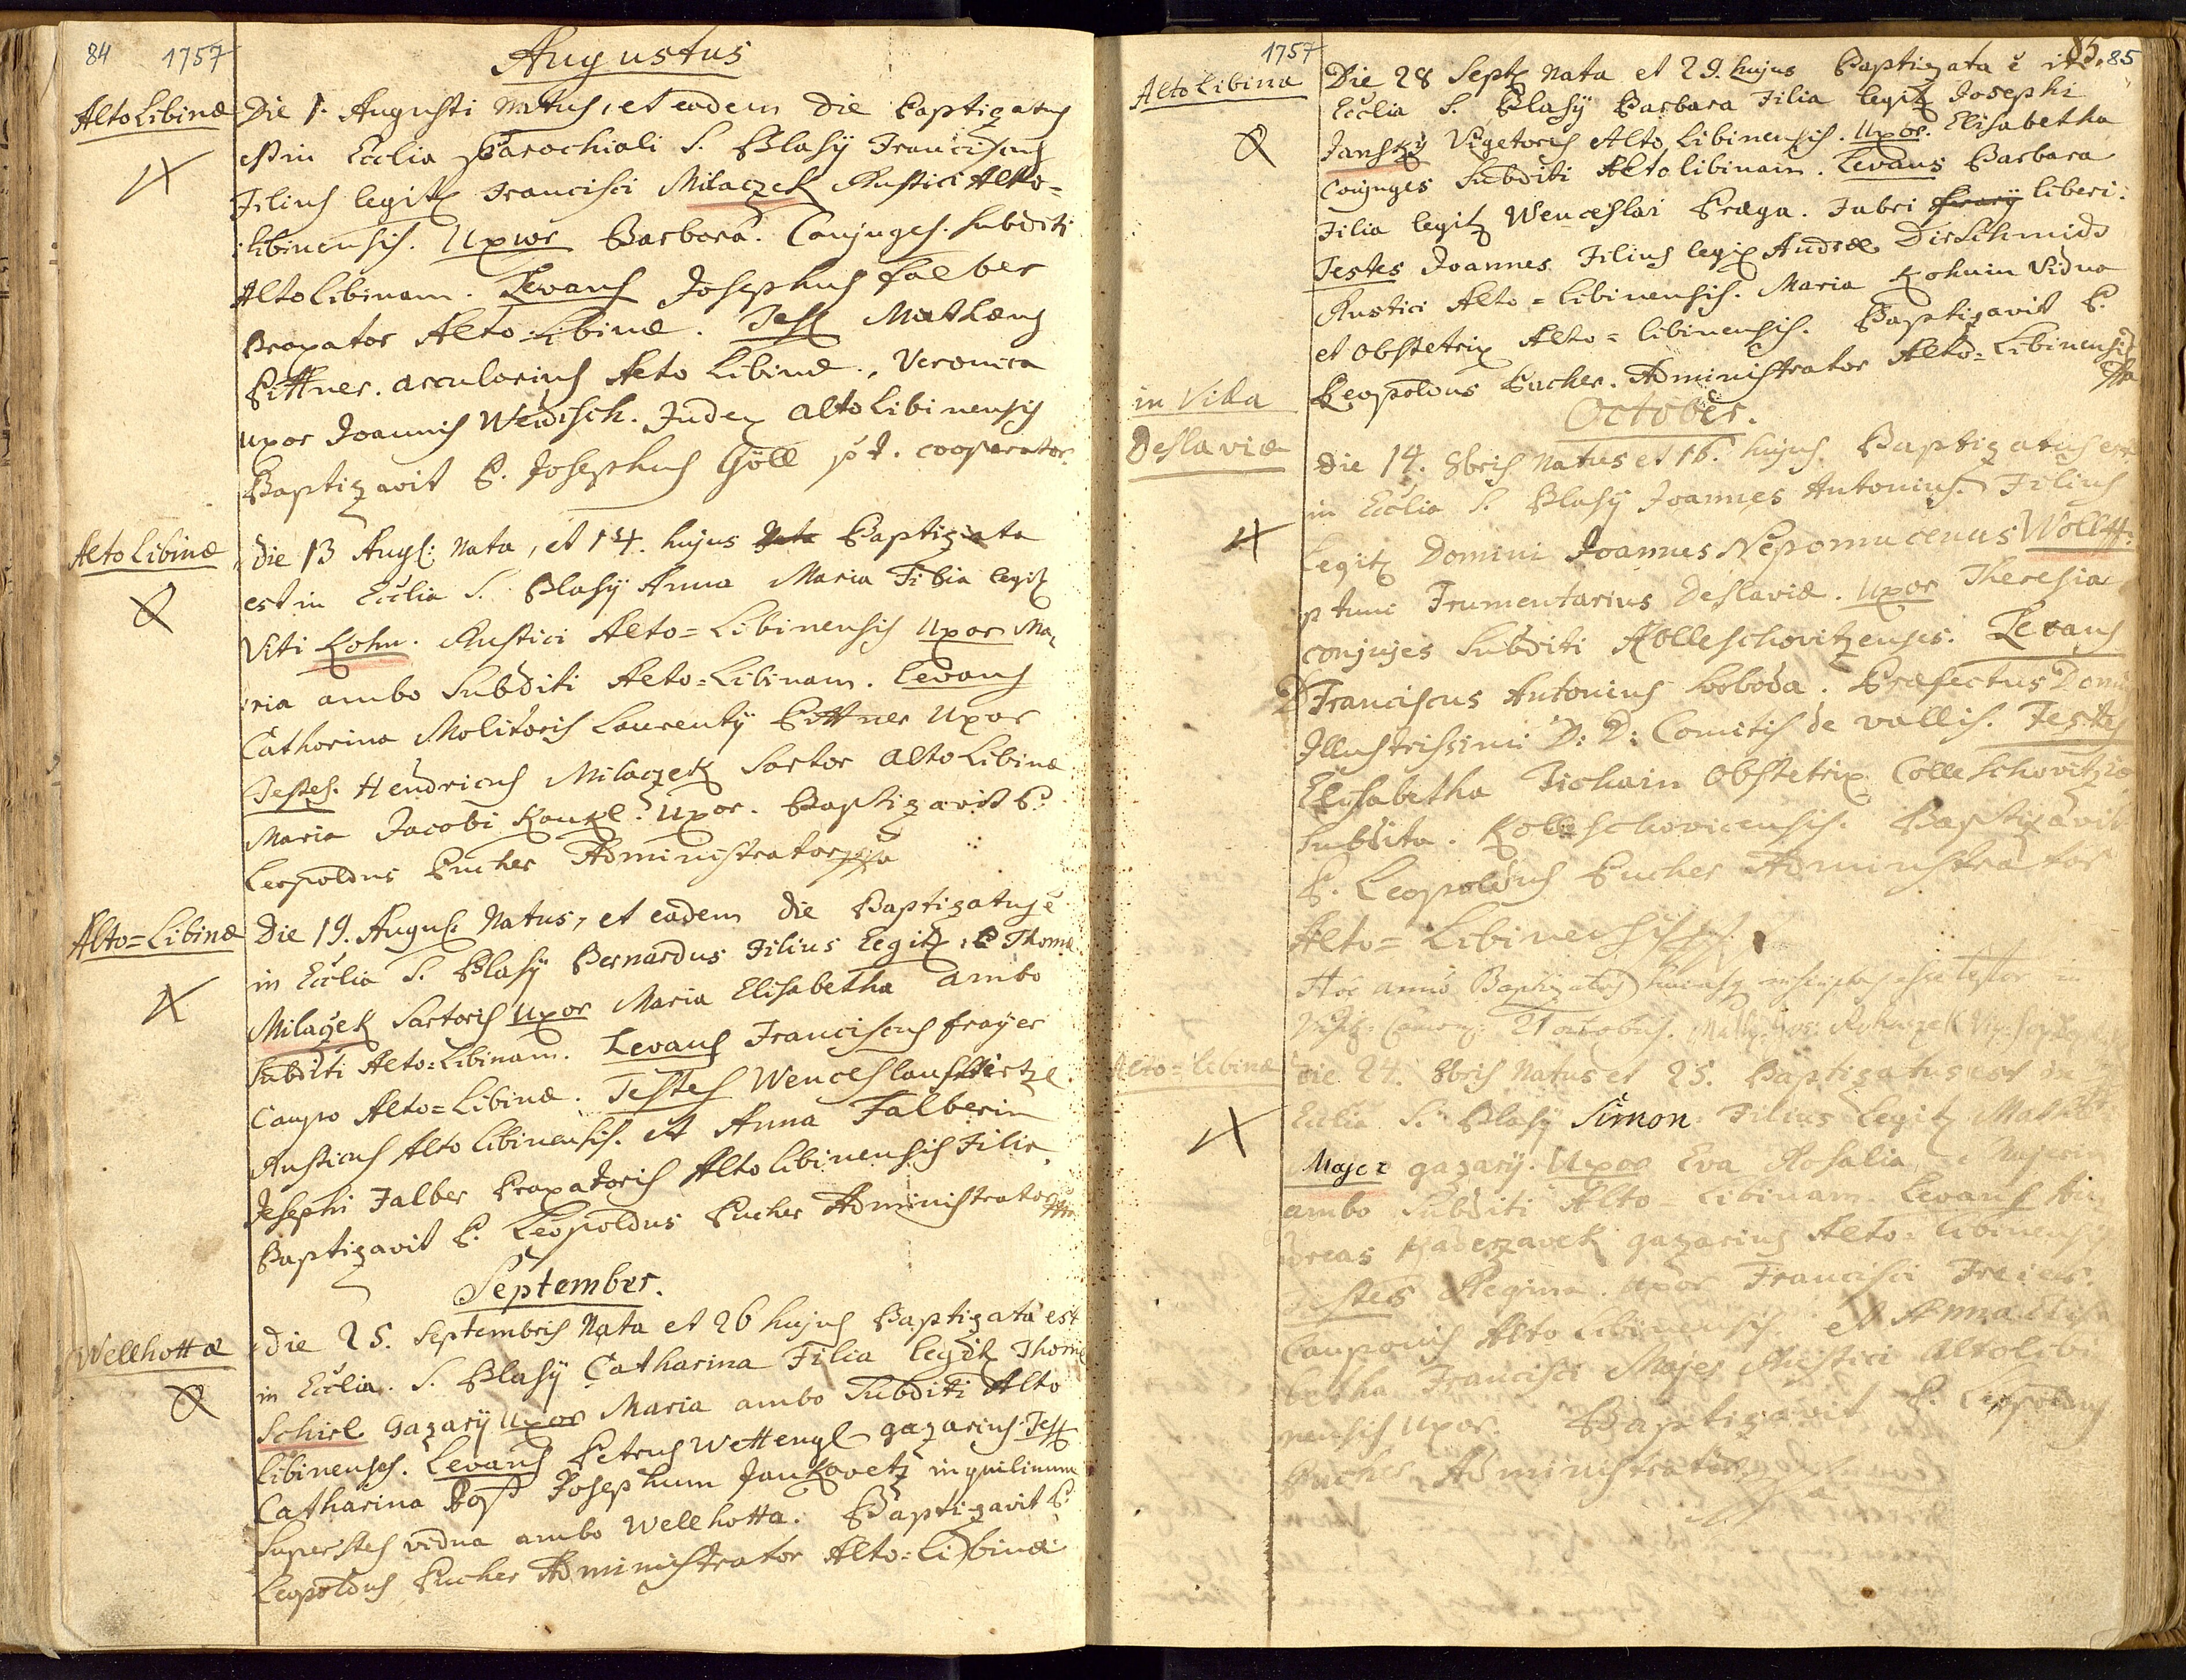 84 1757
Augustus
Alto Libinæ
Die 1. Augusti Natus, et eadem die Baptizatus
est in Ecclia Parochiali S. Blasÿ Franciscus
Filius legit Francisci Milaczek Rustici Alto=
libinensis. Uxor Barbara. Conjuges. subditi
Altolibinam. Levans Josephus falber
Braxator Alto-Libinæ. Test Mathæus
Bittner. arcularius Alto Libinæ., Veronica
uxor Joannis Weidisch. Judex altolibinensis
Baptizavit P. Josephus Göll p.t. cooperator.
Alto Libinæ
die 13 Aug: Nata, et 14. hujus Nata Baptizata
est in Ecclia S. Blasÿ Anna Maria Filia legit
Viti Kohn. Rustici Alto=Libinensis Uxor Ma,
ria ambo Subditi Alto=Libinam. Levans
Catharina Molitoris Laurentÿ Bittner Uxor
Testes. Hendricus Milaczek Sartor alto Libinæ
Maria Jacobi Kankl. Uxor. Baptizavit P.
Leopoldus Pucher Administrator
Alto=Libinæ
Die 19. Augus: Natus, et eadem die Baptizatus ẽ
in Ecclia S. Blasÿ Bernardus Filius Legit: Thomæ
Milaczek Sartoris Uxor Maria Elisabetha ambo
subditi Alto=Libinam. Levans Franciscus frayer
Caupo Alto=Libinæ. Testes Wenceslaus
Rusticus Alto Libinensis. et Anna Falberin
Josephi Falber Braxatoris Alto libinensis Filia.
Baptizavit P. Leopoldus Pucher Administrator
September.
Wellhottæ
die 25. Septembris Nata et 26 hujus Baptizata est
in Ecclia. S. Blasÿ Catharina Filia legit Thomæ
Schirl Gazarÿ Uxor Maria ambo Subditi Alto
libinenses. Levans Petrus Wettengl gazarius Test
Catharina post Josephum Jankovetz inquilinum
Superstes vidua ambo Wellhotta. Baptizavit P.
Leopoldus Pucher Administrator Alto=Libinæ
1757 85. 85
Alto Libina
Die 28 Sept Nata et 29. hujus Baptizata ẽ
Ecclia S. Blasÿ Barbara Filia legit Josephi
Janskÿ Vigetoris Alto Libinensis. Uxor. Elisabetha
Conjuges Subditi Altolibinam. Levans Barbara
Filia legit Wenceslai Praga. Fabri liberi.
Testes Joannes Filius legit Andreæ Dirschmid
Rustici Alto=libinensis. Maria Kohnin Vidua
et Obstetrix Alto=libinensis. Baptizavit P.
Leopoldus Pucher. Administrator Alto=Libinensis
October.
in Villa
Deslaviæ
die 14. 8bris Natus et 16. hujus. Baptizatus est
in Ecclia S. Blasÿ Joannes Antonius. Filius
legit Domini Joannes Nepomucenus Wolff.
p tunc Frumentarius Deslaviæ. Uxor Theresia
conjuges Subditi Kolleschovitzenses. Levans
D Franciscus Antonius Svoboda. Præfectus Domini
Illustrissimi D: D: Comitis de vallis. Testes
Elisabetha Tichain Obstetrix Colleschovitziæ
Subdita. Kolleschovicensis. Baptizavit
P. Leopoldus Pucher Administrator
Alto=Libinensis
Hoc anno Baptizatos testor in
21 octobris.
Alto=Libinæ
Die 24. 8bris Natus et 25. Baptizatus est in
Ecclia S. Blasÿ Simon Filius legit
Majer gazarÿ. Uxor Eva Rosalia
ambo Subditi Alto Libinam. Levans An
dreas gazarius Alto=libinensis
stes Regina. uxor Francisci Freier.
Cauponis Alto Libinensis et Anna Elisa
betha Francisci Majer Rustici altolibi
nensis Uxor. Baptizavit P. Leopoldus
Pucher Administrator